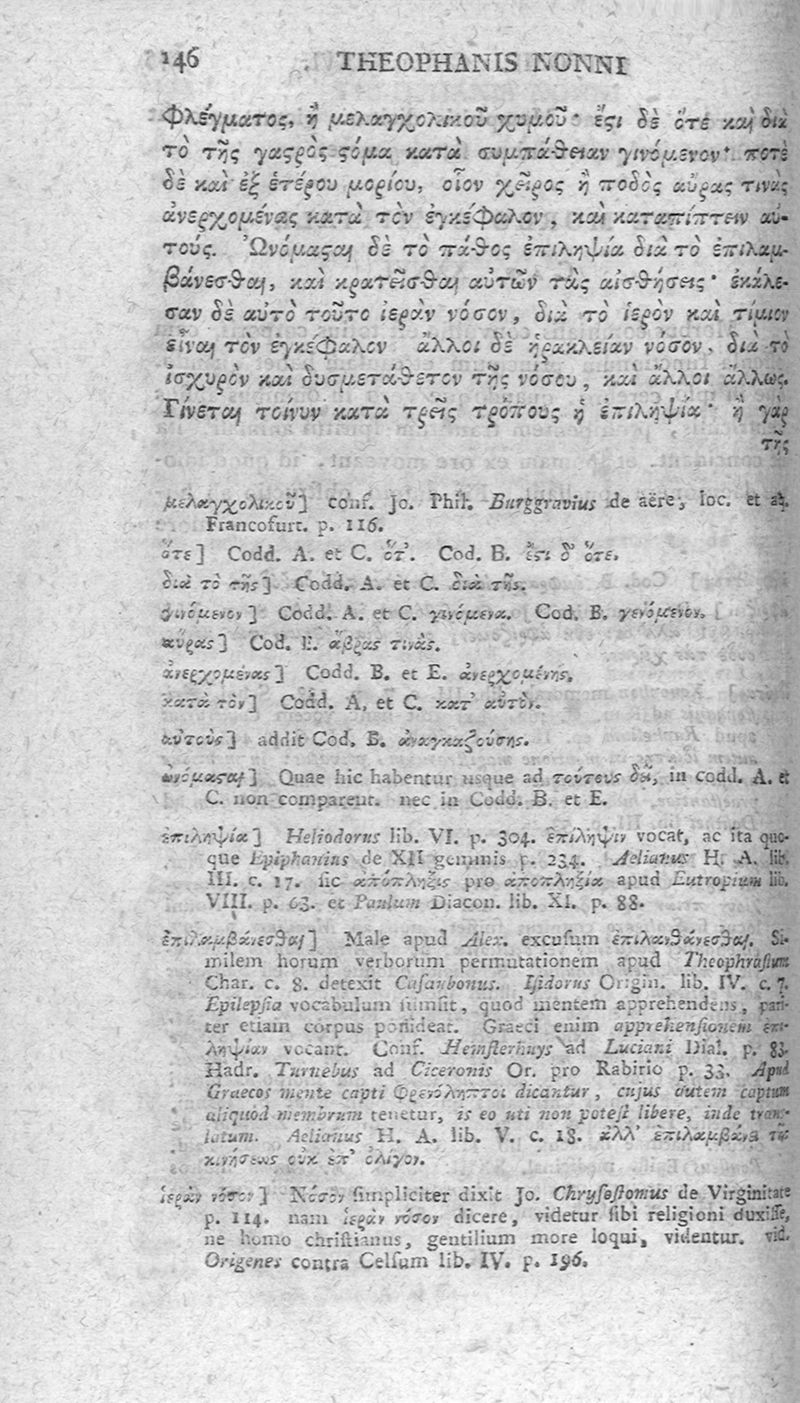 146 THEOPHANIS NONNI
φλέγματος, ἢ μελαγχολικοῦ χυμοῦ· ἔϛι δὲ ὅτε καὶ διὰ
τὸ τῆς γαϛρὸς ϛόμα κατὰ συμπάθειαν γινόμενον· ποτὲ
δὲ καὶ ἐξ ἑτέρου μορίου, οἷον χεῖρος ἢ ποδὸς αὔρας τινὰς
ἀνερχομένας κατὰ τὸν ἐγκέφαλον, καὶ καταπίπτειν αὐ-
τούς. Ὠνόμαϛαι δὲ τὸ πάθος ἐπιληψία διὰ τὸ ἐπιλαμ-
βάνεσθαι, καὶ κρατεῖσθαι αὐτῶν τὰς αἰσθήσεις· ἐκάλε-
σαν δὲ αὐτὸ τοῦτο ἱερὰν νόσον, διὰ τὸ ἱερὸν καὶ τίμιον
εἶναι τὸν ἐγκέφαλον ἄλλοι δὲ ἡρακλείαν νόσον, διὰ τὸ
ἰσχυρὸν καὶ δυσμετάθετον τῆς νόσου, καὶ ἄλλοι ἄλλως.
Γίνεται τοίνυν κατὰ τρεῖς τρόπους ἡ ἐπιληψία· ἢ γὰρ
τῆς
μελαγχολικοῦ] conf. Jo. Phil. Burggravius de aëre, loc. et aq.
Francofurt. p. 116.
ὅτε] Codd. A. et C. ὅτ'. Cod. B. ἔϛι δ' ὅτε.
διὰ τὸ τῆς] Codd. A. et C. διὰ τῆς.
γινόμενον] Codd. A. et C. γινόμενα. Cod. B. γενόμενον.
αὔρας] Cod. E. ἄβρας τινὰς.
ἀνερχομένας] Codd. B. et E. ἀνερχομένης.
κατὰ τὸν] Codd. A. et C. κατ' αὐτὸν.
αὐτοὺς] addit Cod. B. ἀναγκαζούσης.
ὠνόμαϛαι] Quae hic habentur usque ad τούτους δεῖ, in codd. A. et
C. non comparent. nec in Codd. B. et E.
ἐπιληψία] Heliodorus lib. VI. p. 304. ἐπίληψιν vocat, ac ita quo-
que Epiphanius de XII gemmis p. 234. Aelianus H. A. lib.
III. c. 17. sic ἀπόπληξις pro ἀποπληξία apud Eutropium lib.
VIII. p. 63. et Paulum Diacon. lib. XI. p. 88.
ἐπιλαμβάνεσθαι] Male apud Alex. excusum ἐπιλανθάνεσθαι. Si-
milem horum verborum permutationem apud Theophrastum
Char. c. 8. detexit Casaubonus. Isidorus Origin. lib. IV. c. 7.
Epilepsia vocabulum sumsit, quod mentem apprehendens, pari-
ter etiam corpus possideat. Graeci enim apprehensionem ἐπι-
ληψίαν vocant. Conf. Hemsterhuys ad Luciani Dial. p. 83.
Hadr. Turnebus ad Ciceronis Or. pro Rabirio p. 33. Apud
Graecos mente capti φρενόληπτοι dicantur, cujus autem captum
aliquod membrum tenetur, is eo uti non potest libere, inde trans-
latum. Aelianus H. A. lib. V. c. 18. ἀλλ' ἐπιλαμβάνει τῆς
κινήσεως οὐκ ἐπ' ὀλίγον.
ἱερὰν νόσον] Νόσον simpliciter dixit Jo. Chrysostomus de Virginitate
p. 114. nam ἱερὰν νόσον dicere, videtur sibi religioni duxisse,
ne homo christianus, gentilium more loqui, videntur. vid.
Origenes contra Celsum lib. IV. p. 196.